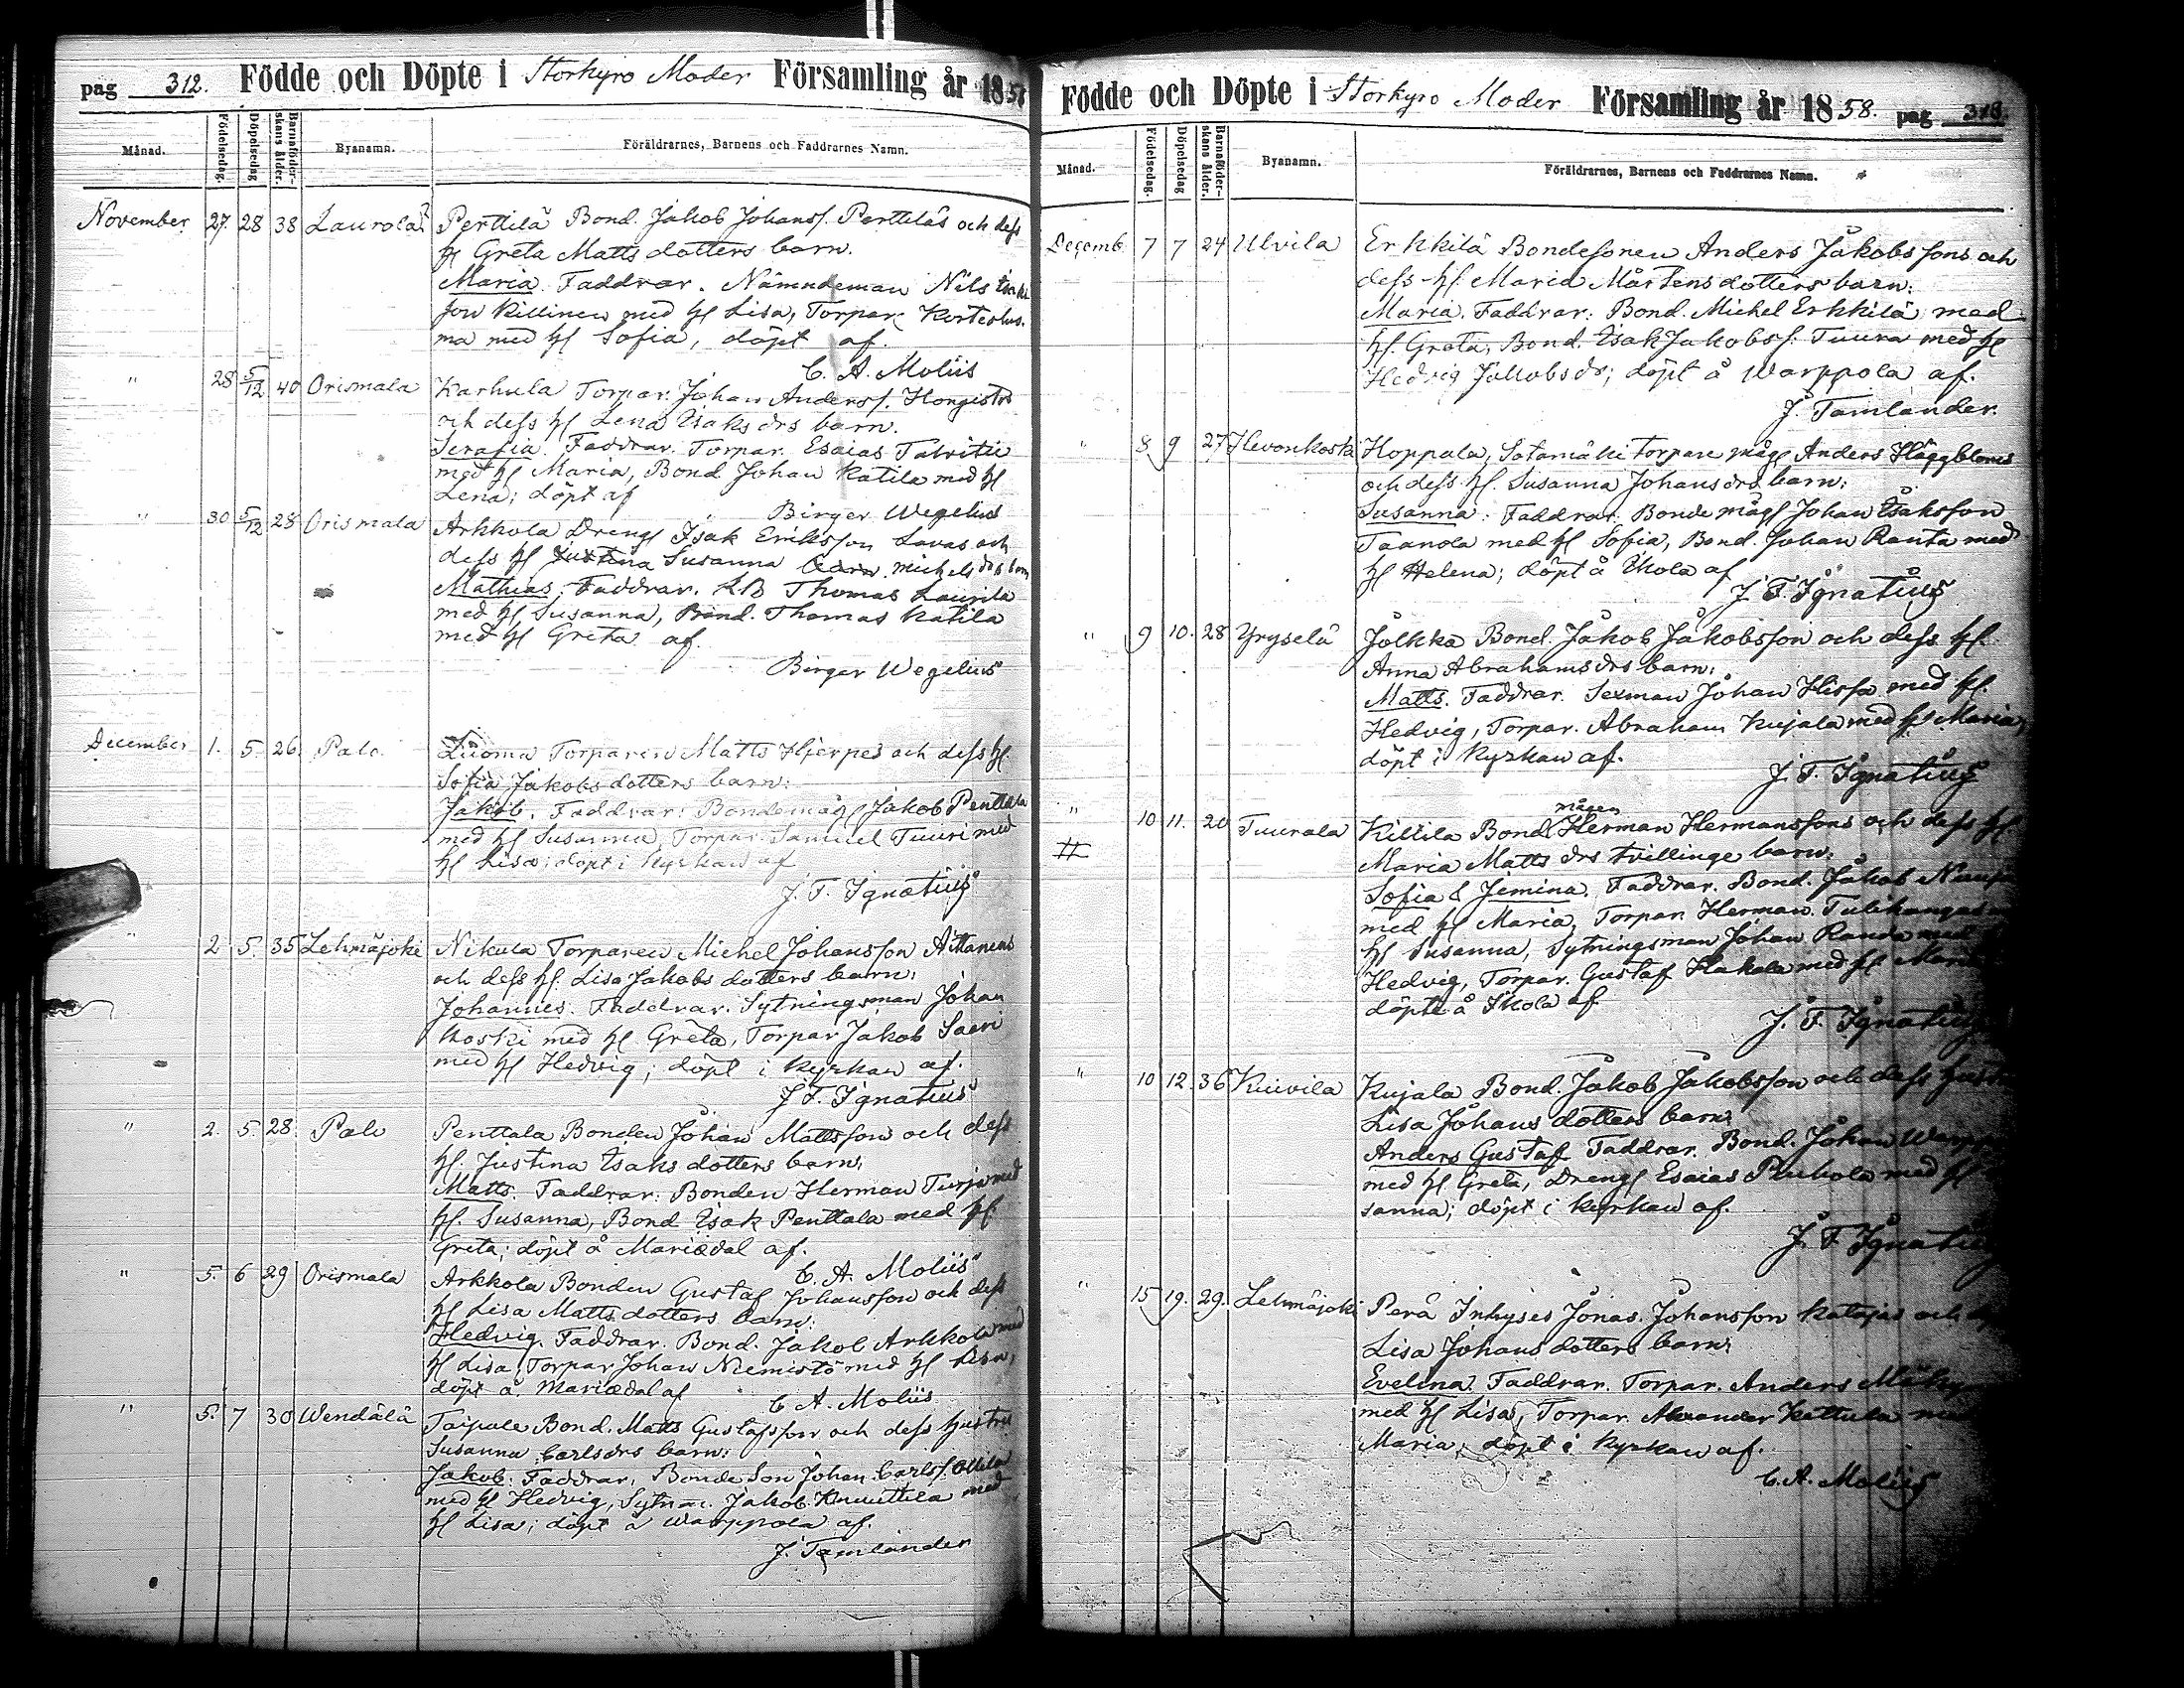 pag 312. Födde och Döpte i Storkyro Moder Församling år 1858
Månad. Födelsedag. Döpelsedag Barnaföderskans ålder. Byanamn. Föräldrarnes, Barnens och Faddrarnes Namn.
November 27. 28 38 Laurola Perttilä Bond. Jakob Johanss. Perttiläs och dess
hu Greta Matts dotters barn.
Maria. Faddrar. Nämndeman Nils
son Killinen med hu Lisa, Torpar.
ma med hu Sofia, döpt af.
C. A. Moliis
" 28 5/12 40 Orismala Karhula Torpar. Johan Anderss. Hongisto
och dess hu Lena Isaks drs barn.
Serafia. Faddrar. Torpar. Esaias Talvitie
med hu Maria, Bond Johan Katila med hu
Lena; döpt af
Birger Wegelius
" 30 5/12 28 Orismala Arkkola Dreng Isak Eriksson Lavas och
dess hu Justina Susanna barn. Michels drs barn
Mathias. Faddrar. Thomas Laurila
med hu Susanna, Bond. Thomas Katila
med hu Greta af.
Birger Wegelius
December 1. 5. 26. Palo. Luoma Torparen Matts Hjerpes och dess hu
Sofia Jakobs dotters barn:
Jakob. Faddrar: Bondemåg Jakob Penttala
med hu Susanna, Torpar Samuel Tuuri med
hu Lisa; döpt i Kyrkan af
J. F. Ignatius
" 2 5. 35 Lehmäjoki Nikula Torparen Michel Johansson Aittaniemi
och dess hu. Lisa Jakobs dotters barn:
Johannes. Faddrar. Sytningsman Johan
Koski med hu Greta, Torpar Jakob Saari
med hu Hedvig; döpt i Kyrkan af.
J. F. Ignatius
" 2. 5. 28. Palo Penttala Bonden Johan Mattsson och dess
hu. Justina Isaks dotters barn:
Matts. Faddrar: Bonden Herman Turja med
hu. Susanna, Bond Isak Penttala med hu
Greta; döpt å Mariedal af.
C. A. Moliis
" 5. 6 29 Orismala Arkkola Bonden Gustaf Johansson och dess
hu Lisa Matts dotters barn:
Hedvig. Faddrar. Bond. Jakob Arkkola med
hu Lisa, Torpar Johan Niemistö med hu Lisa,
döpt å Mariedal af
C. A. Moliis
" 5. 7 30 Wendälä Taipale Bond. Matts Gustafsson och dess hustru
Susanna Carlsdrs barn:
Jakob. Faddrar. Bonde Son Johan Carlss. Ollila
med hu Hedvig, Sytn. Jakob Knuuttila med
hu Lisa; döpt å Warppola af.
J. Tamlander
Födde och Döpte i Storkyro Moder Församling år 1858. pag 313.
Månad. Födelsedag. Döpelsedag Barnaföderskans ålder. Byanamn. Föräldrarnes, Barnens och Faddrarnes Namn.
Decemb. 7 7 24 Ulvila Erkkilä Bondesonen Anders Jakobssons och
dess hu. Maria Mårtens dotters barn:
Maria. Faddrar: Bond. Michel Erkkilä med
hu. Greta, Bond. Isak Jakobss. Tuura med hu
Hedvig Jakobsdr; döpt å Warppola af.
J. Tamlander.
" 8 9 27 Hevonkoski Hoppala, Satamäki torpare måg Anders Häggbloms
och dess hu. Susanna Johans drs barn:
Susanna. Faddrar. Bonde måg Johan Isaksson
Taanola med hu Sofia, Bond. Johan Ranta med
hu Helena; döpt å Ikola af
J. F. Ignatius
" 9 10. 28 Yryselä Jolkka Bond. Jakob Jakobsson och dess hu
Anna Abrahams drs barn:
Matts. Faddrar. Sexman Johan Hissa med hu.
Hedvig, Torpar. Abraham Kujala med hu Maria,
döpt i Kyrkan af.
J. F. Ignatius
" 10 11. 20 Tuurala Kiltilä Bond mågen Herman Hermanssons och dess hu
Maria Matts drs tvillinge barn:
Sofia & Jemina. Faddrar. Bond. Jakob
med hu Maria, Torpar. Herman Tulikangas
hu Susanna, Sytningsman Johan Randa med
Hedvig, Torpar. Gustaf Hakala med hu Maria
döpte å Ikola af
J. F. Ignatius
" 10 12. 36 Kuivila Kujala Bond. Jakob Jakobsson och dess hustru
Lisa Johans dotters barn:
Anders Gustaf. Faddrar. Bond. Johan
med hu Greta, Dreng Esaias Puhola med hu
sanna; döpt i kyrkan af.
J. F. Ignatius
" 15 19. 29. Lehmäjoki Perä Inhyses Jonas Johansson Katajas och
Lisa Johans dotters barn:
Evelina. Faddrar. Torpar. Anders
med hu Lisa, Torpar. Alexander Kattula med
Maria, döpt i Kyrkan af.
C. A. Moliis